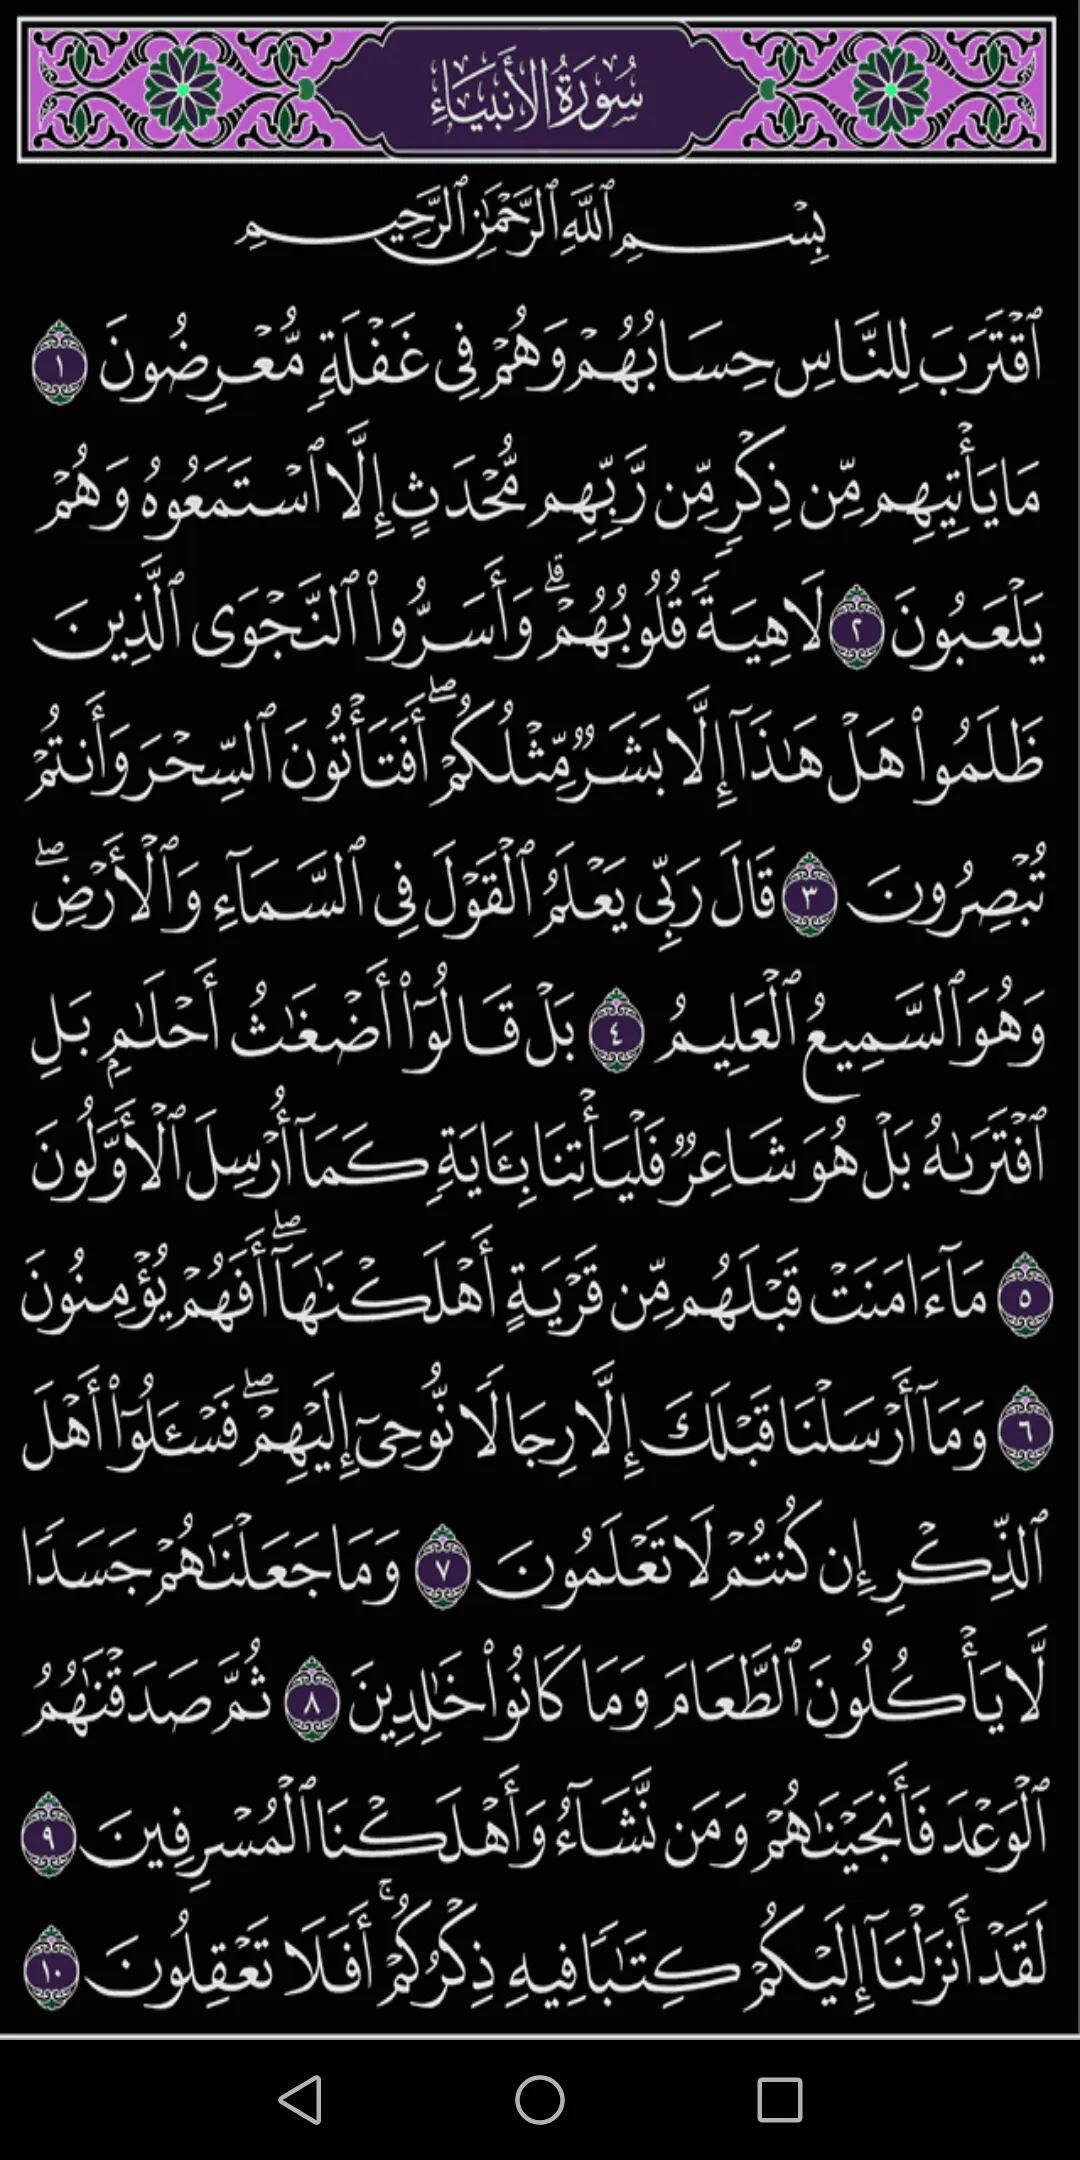 سُورَةُ الأَنبِيَاءِ
بِسْمِ ٱللَّهِ ٱلرَّحْمَٰنِ ٱلرَّحِيمِ
ٱقْتَرَبَ لِلنَّاسِ حِسَابُهُمْ وَهُمْ فِى غَفْلَةٍ مُّعْرِضُونَ ١
مَا يَأْتِيهِم مِّن ذِكْرٍ مِّن رَّبِّهِم مُّحْدَثٍ إِلَّا ٱسْتَمَعُوهُ وَهُمْ
يَلْعَبُونَ ٢ لَاهِيَةً قُلُوبُهُمْ ۗ وَأَسَرُّوا۟ ٱلنَّجْوَى ٱلَّذِينَ
ظَلَمُوا۟ هَلْ هَٰذَآ إِلَّا بَشَرٌ مِّثْلُكُمْ ۖ أَفَتَأْتُونَ ٱلسِّحْرَ وَأَنتُمْ
تُبْصِرُونَ ٣ قَالَ رَبِّى يَعْلَمُ ٱلْقَوْلَ فِى ٱلسَّمَآءِ وَٱلْأَرْضِ ۖ
وَهُوَ ٱلسَّمِيعُ ٱلْعَلِيمُ ٤ بَلْ قَالُوٓا۟ أَضْغَٰثُ أَحْلَٰمٍۭ بَلِ
ٱفْتَرَىٰهُ بَلْ هُوَ شَاعِرٌ فَلْيَأْتِنَا بِـَٔايَةٍ كَمَآ أُرْسِلَ ٱلْأَوَّلُونَ
٥ مَآ ءَامَنَتْ قَبْلَهُم مِّن قَرْيَةٍ أَهْلَكْنَٰهَآ ۖ أَفَهُمْ يُؤْمِنُونَ
٦ وَمَآ أَرْسَلْنَا قَبْلَكَ إِلَّا رِجَالًا نُّوحِىٓ إِلَيْهِمْ ۖ فَسْـَٔلُوٓا۟ أَهْلَ
ٱلذِّكْرِ إِن كُنتُمْ لَا تَعْلَمُونَ ٧ وَمَا جَعَلْنَٰهُمْ جَسَدًا
لَّا يَأْكُلُونَ ٱلطَّعَامَ وَمَا كَانُوا۟ خَٰلِدِينَ ٨ ثُمَّ صَدَقْنَٰهُمُ
ٱلْوَعْدَ فَأَنجَيْنَٰهُمْ وَمَن نَّشَآءُ وَأَهْلَكْنَا ٱلْمُسْرِفِينَ ٩
لَقَدْ أَنزَلْنَآ إِلَيْكُمْ كِتَٰبًا فِيهِ ذِكْرُكُمْ ۚ أَفَلَا تَعْقِلُونَ ١٠